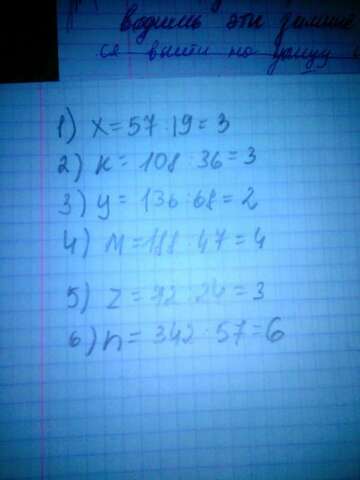 водишь эти зимние
ся выйти на улицу
1) x = 57 : 19 = 3
2) k = 108 : 36 = 3
3) y = 136 : 68 = 2
4) M = 188 : 47 = 4
5) z = 72 : 24 = 3
6) n = 342 : 57 = 6